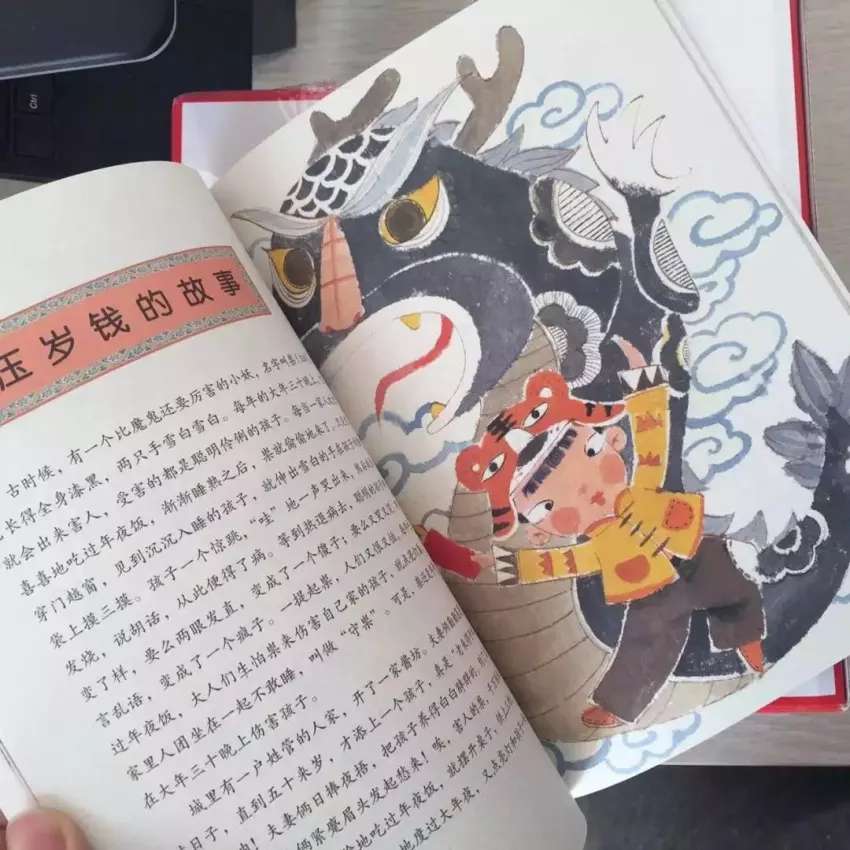 压岁钱的故事
古时候，有一个比魔鬼还要厉害的小妖，名字叫祟！
长得全身漆黑，两只手雪白雪白。每年的大年三十晚上，
就会出来害人，受害的都是聪明伶俐的孩子。每当一家人
喜喜地吃过年夜饭，渐渐睡熟之后，祟就偷偷地来了，
穿门越窗，见到沉沉入睡的孩子，就伸出雪白的手在
袋上摸三摸。孩子一个惊跳，“哇”地一声哭出来，然后
发烧，说胡话，从此便得了病。等到热退病去，聪明
变了样，要么两眼发直，变成了一个傻子；要么又哭又
言乱语，变成了一个疯子。一提起祟，人们又恨又怕。
过年夜饭，大人们生怕祟来伤害自己家的孩子，就
家里人团坐在一起不敢睡，叫做“守祟”。可是，祟还
在大年三十晚上伤害孩子。
城里有一户姓管的人家，开了一家酱坊。夫妻
日子，直到五十来岁，才添上一个孩子，真是
夫妻俩日捧夜捂，把孩子养得白白胖胖的
俩紧蹙眉头发起愁来！唉，害人的祟，
地吃过年夜饭，就摆开桌子，
地度过大年夜，又点亮灯
Ctrl